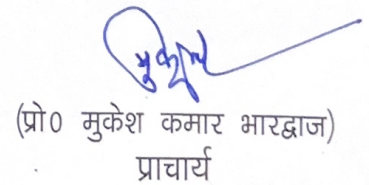 मुकेश
(प्रो० मुकेश कुमार भारद्वाज)
प्राचार्य